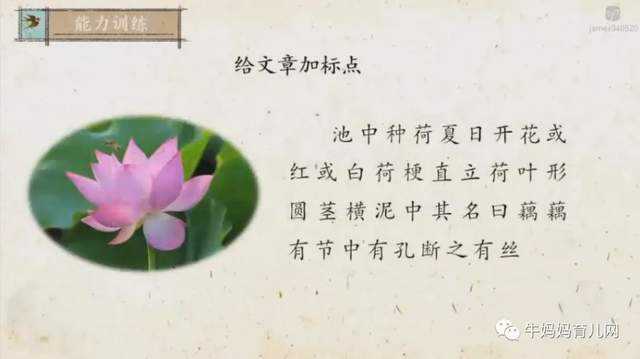 能力训练
james940520
给文章加标点
池中种荷夏日开花或
红或白荷梗直立荷叶形
圆茎横泥中其名曰藕藕
有节中有孔断之有丝
牛妈妈育儿网